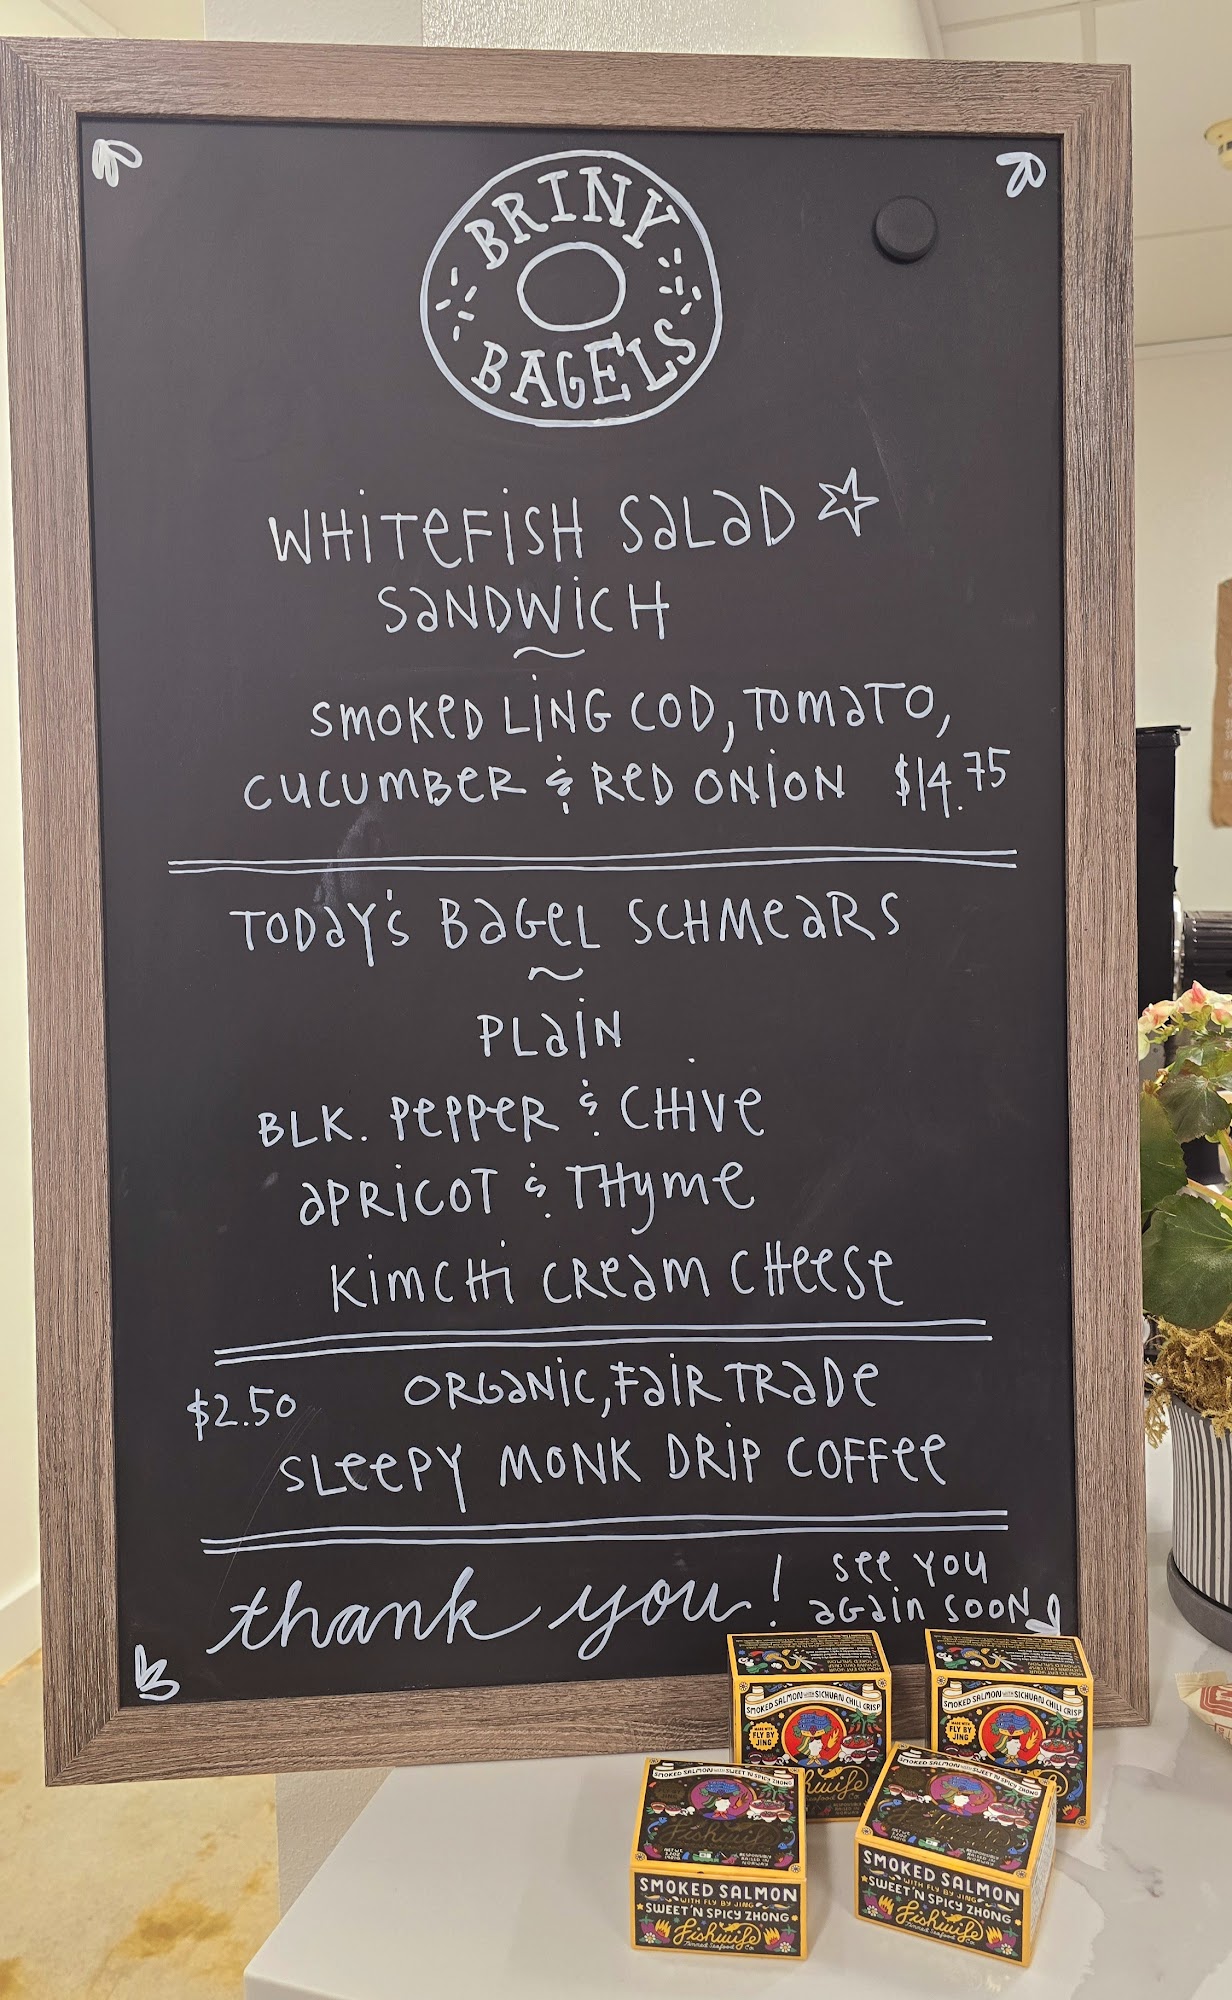 BRINY
BAGELS
WHITEFISH SALAD
SANDWICH
~
SMOKED LING COD, TOMATO,
CUCUMBER & RED ONION $14.75
TODAY'S BAGEL SCHMEARS
~
PLAIN
BLK. PEPPER & CHIVE
APRICOT & THYME
KIMCHI CREAM CHEESE
$2.50 ORGANIC, FAIR TRADE
SLEEPY MONK DRIP COFFEE
thank you! SEE YOU
AGAIN SOON
SMOKED SALMON WITH SICHUAN CHILI CRISP
MADE WITH
FLY BY
JING
SMOKED SALMON WITH SICHUAN CHILI CRISP
MADE WITH
FLY BY
JING
SMOKED SALMON WITH SWEET 'N SPICY ZHONG
Fishwife
SMOKED SALMON
WITH FLY BY JING
SWEET 'N SPICY ZHONG
Fishwife
Tinned Seafood Co
SMOKED SALMON WITH SWEET 'N SPICY ZHONG
Fishwife
SMOKED SALMON
WITH FLY BY JING
SWEET 'N SPICY ZHONG
Fishwife
Tinned Seafood Co